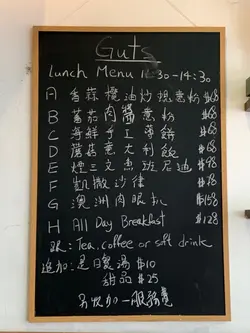 Guts
Lunch Menu 11:30-14:30
A 香蒜橄油炒規意粉 $68
B 蕃茄肉醬意粉 $68
C 海鮮手工薄餅 $68
D 蘑菇意大利飯 $68
E 煙三文魚班尼迪 $98
F 凱撒沙律 $78
G 澳洲肉眼扒 $158
H All Day Breakfast $128
跟: Tea, coffee or soft drink
追加: 是日餐湯 $10
甜品 $25
另收加一服務費